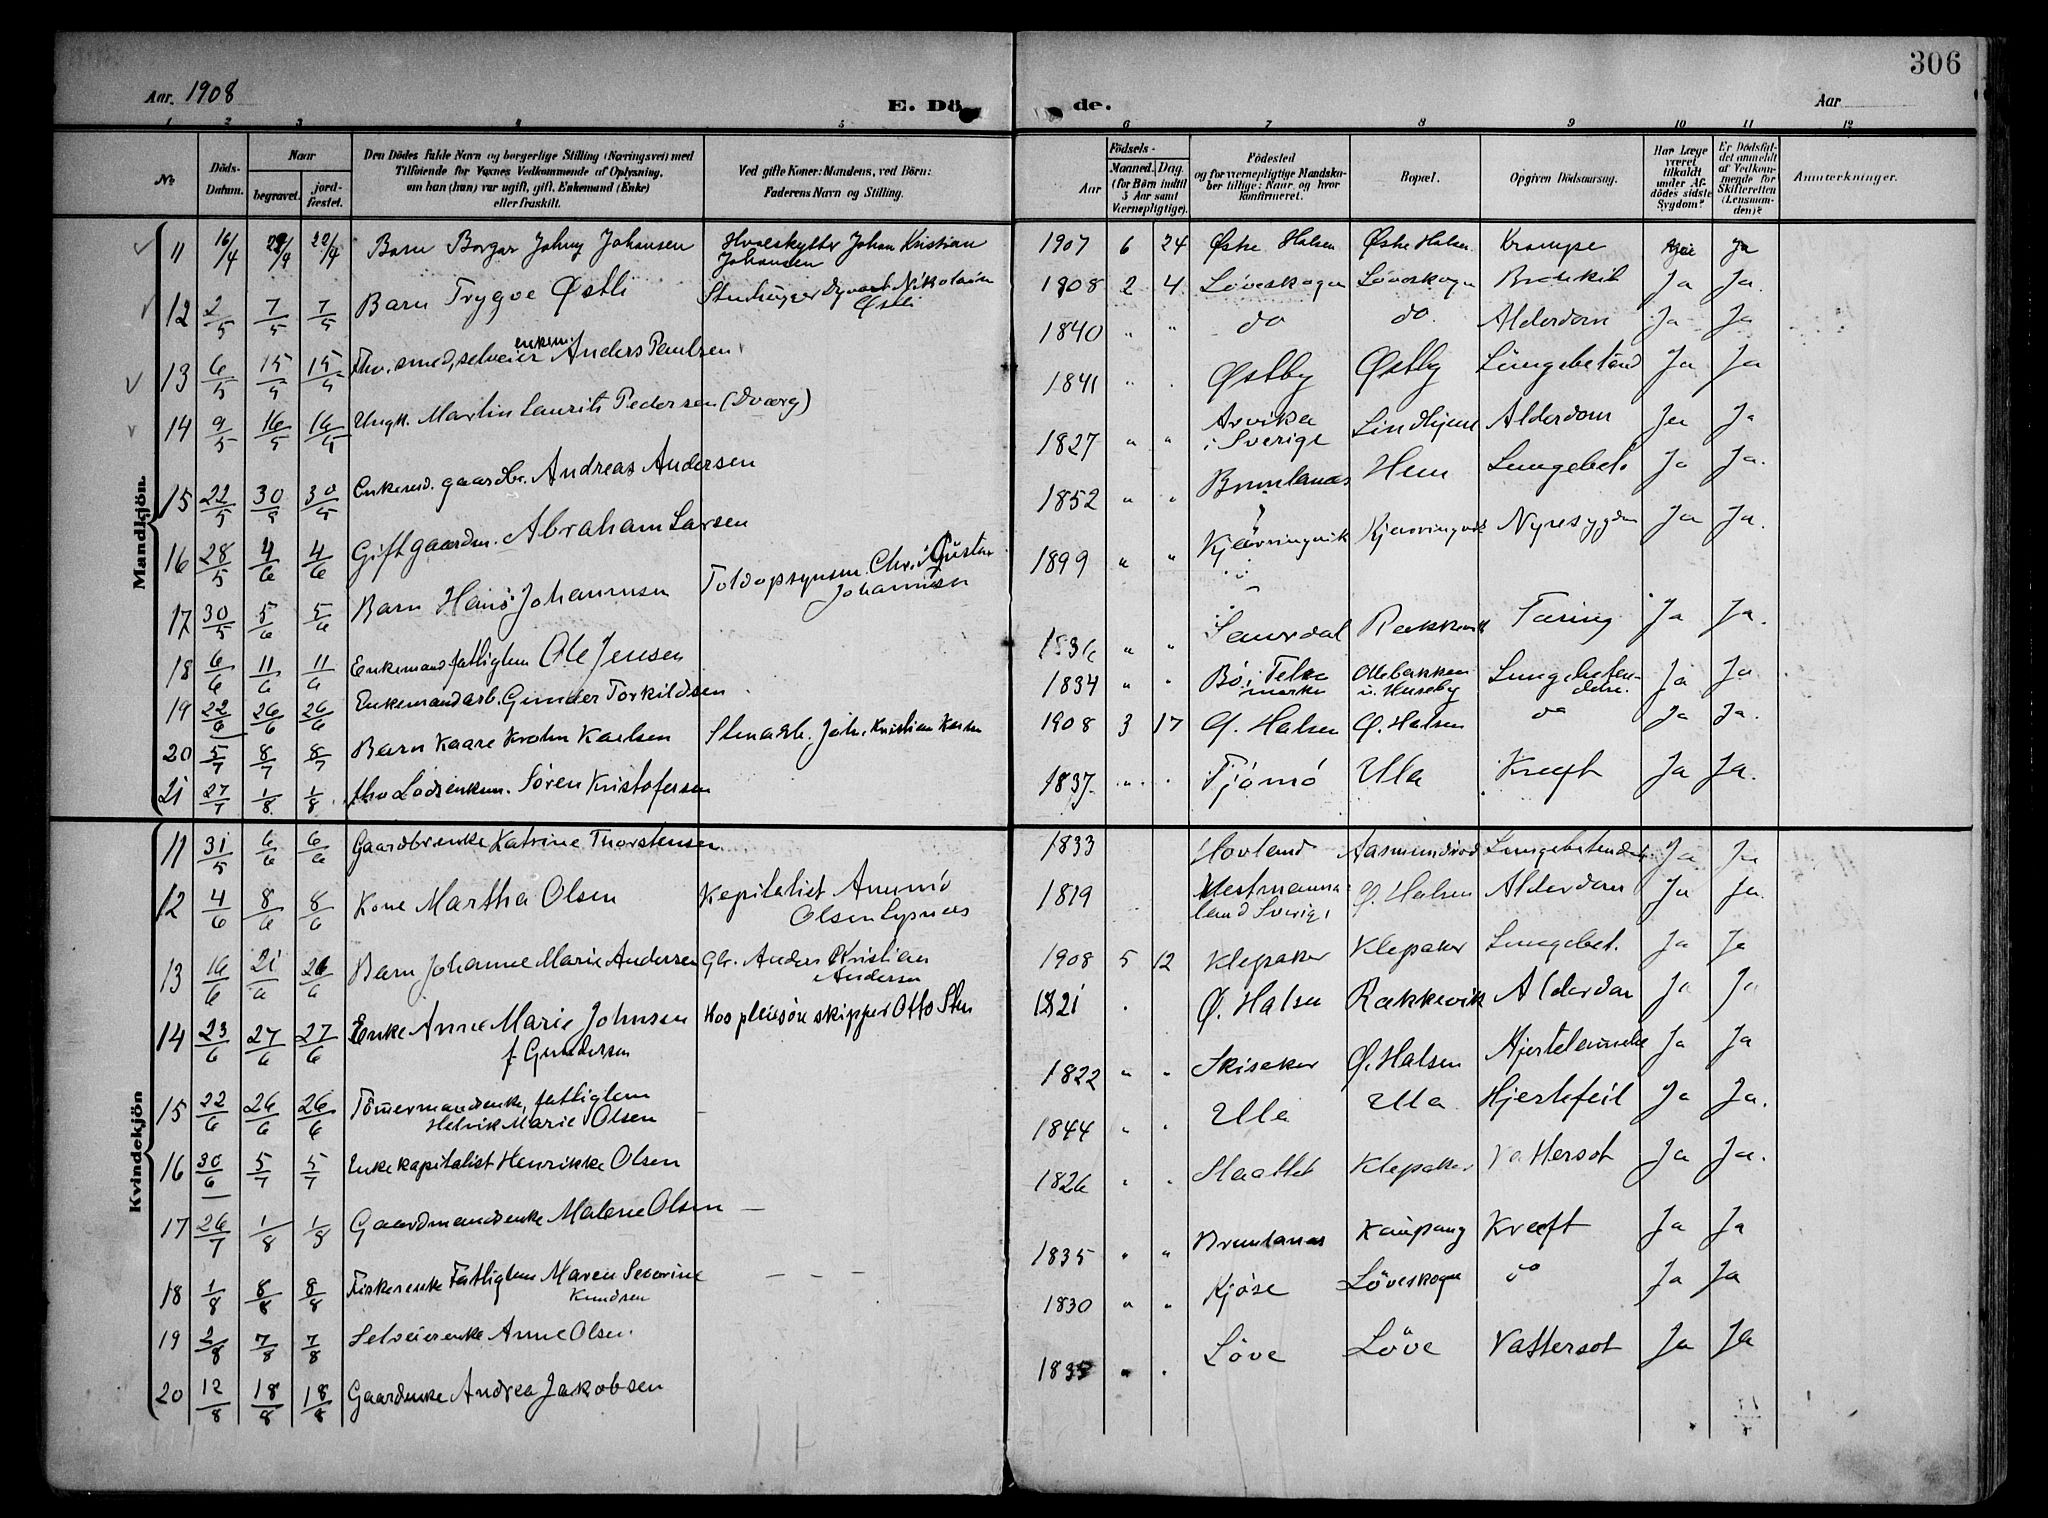 306
Aar. 1908
E. Dö
de.
Aar
1 2 3 4 5 6 7 8 9 10 11 12
№
Döds-Datum.
Naar
begravet.
jord-fæstet.
Den Dödes fulde Navn og borgerlige Stilling (Næringsvei) med
Tilföiende for Voxnes Vedkommende af Oplysning,
om han (hun) var ugift, gift, Enkemand (Enke)
eller fraskilt.
Ved gifte Koner: Mandens, ved Börn:
Faderens Navn og Stilling.
Födsels-
Aar
Maaned. Dag.
(for Börn indtil
5 Aar samt
Værnepligtige).
Födested
og for værnepligtige Mandska-
ber tillige: Naar og hvor
konfirmeret.
Bopæl.
Opgiven Dödsaarsag.
Har Læge
været
tilkaldt
under Af-
dödes sidste
Sygdom?
Er Dödsfal-
det anmeldt
af Vedkom-
mende for
Skifteretten
(Lensman-
den)?
Anmærkninger.
Mandkjön.
11 16/4 22/4 Barn Borgar Johny Johansen Hvalskytter Johan Kristian Johansen 1907 6 24 Østre Halsen Østre Halsen Krampe Ja
12 2/5 7/5 7/5 Barn Trygve Østli Nikolaisen Østli 1908 2 4 Løveskogen Løveskogen Bronkit Ja Ja.
13 6/5 15/5 15/5 Fhv. smed, selveier enkem. Anders Paulsen 1840 " " do do. Alderdom Ja Ja
14 9/5 16/5 16/5 Ungk. Martin Laurits Pedersen (Dværg) 1841 " " Østby Østby Lungebetænd Ja Ja
15 22/5 30/5 30/5 Enkemd. gaardbr. Andreas Andersen 1827 " " Arvika i Sverige Lindhjem Alderdom Ja Ja
16 28/5 4/6 4/6 Gift gaardm. Abraham Larsen 1852 " " Brunlanæs Hem Lungebet. Ja Ja.
17 30/5 5/6 5/6 Barn Hans Johannesen Toldopsynsm. Chr. Gustav Johannesen 1899 " " Kjærringvik Kjærringvik Nyresygdom Ja Ja.
18 6/6 11/6 11/6 Enkemand fatliglem Ole Jensen 1836 " " Saurdal Rækkevik Tæring Ja Ja.
19 22/6 26/6 26/6 Enkemand arb. Gunder Torkildsen 1834 " " Bø i Telemarken Ollebakken u. Huseby Lungebetændelse. Ja Ja
20 5/7 8/7 8/7 Barn Kaare Krohn Karlsen Joh. Kristian Karlsen 1908 3 17 Ø. Halsen Ø. Halsen do Ja Ja.
21 27/7 1/8 1/8 fhv Lodsenkem. Søren Kristofersen 1837. " " Tjømø Ula Kræft Ja Ja.
Kvindekjön
11 31/5 6/6 6/6 Gaardbrenke Katrine Thorstensen 1833 Hovland Aasmundrød Lungebetændelse Ja Ja
12 4/6 8/6 8/6 Kone Martha Olsen Kapitalist Olsen Lysnes 1819 Vestmannaland Sverige Ø. Halsen Alderdom Ja Ja.
13 16/6 21/6 21/6 Barn Johanne Marie Andersen Gbr. Anders Kristian Andersen 1908 5 12 Klepaker Klepaker Lungebet. Ja Ja
14 23/6 27/6 27/6 Enke Anne Marie Johnsen f Gundersen Hos pleiesøn skipper Otto Sten 1821 " Ø. Halsen Rækkevik Alderdom Ja Ja
15 22/6 26/6 26/6 Tömmermandsenke, fatliglem Helvik Marie Olsen – 1822 " " Skisaker Ø. Halsen Hjertelammelse Ja Ja
16 30/6 5/7 5/7 Enke kapitalist Henrikke Olsen 1844 " " Ula Ula Hjertefeil Ja Ja.
17 26/7 1/8 1/8 Gaardmandsenke Malene Olsen – 1826 " " Staattet Klepaker Vattersot Ja Ja.
18 1/8 8/8 8/8 Fiskerenke Fatliglem Maren Severine Knudsen – – – 1835 " " Brunlanæs Kaupang Kræft Ja Ja
19 2/8 7/8 7/8 Selveierenke Anne Olsen. 1830 " " Kjøse Løveskogen do Ja Ja
20 12/8 18/8 18/8 Gaardenke Andrea Jakobsen " " Løve Løve Vattersot Ja Ja